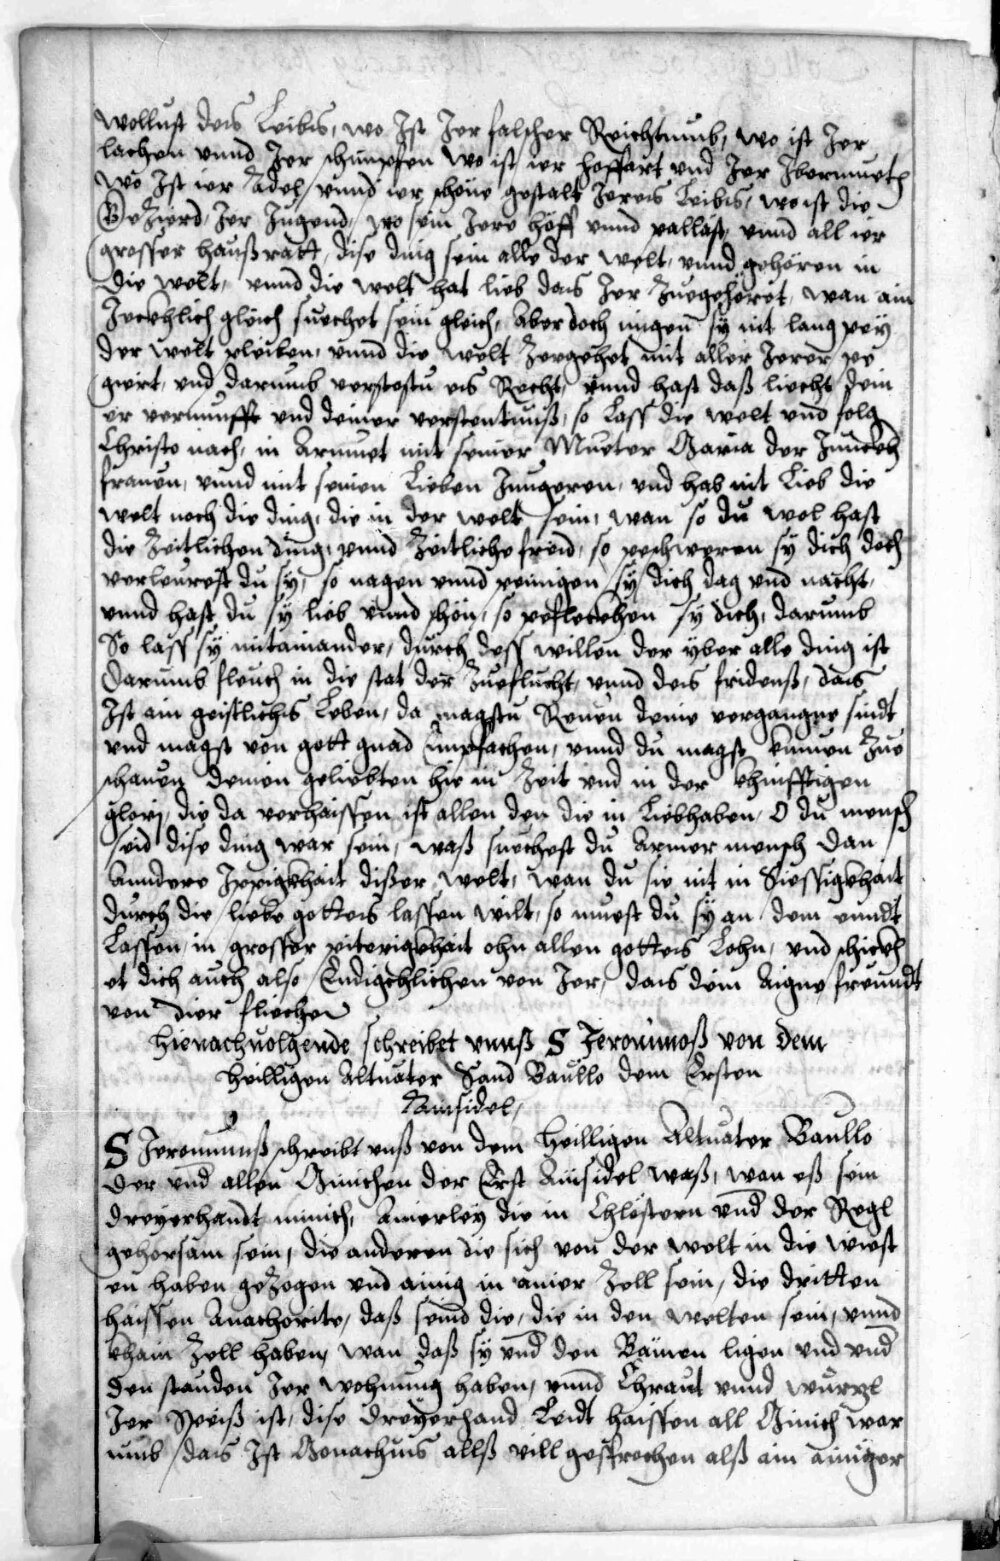 wollust des Leibes, wo Ist Jer falscher Reichtumb, wo ist Jer
lachen vnnd Jer schimpfen wo ist ier hoffart vnd Jer Ibermueth
wo Ist ier Adel, vnnd ier schöne gestalt Jeres Leibes, wo ist die
Geezierd, Jer Jugend, wo sein Jere höff vnnd pallast, vnnd all ier
grosser haußratt, dise ding sein alle der welt, vnnd gehören in
die welt, vnnd die welt hat lieb das Jer Zuegehöret, wan ain
Jecekhlich gleich suechet sein gleich, Aber doch mügen sy nit lang pey
der welt pleiben, vnnd die welt Zergehet mit aller Jerer pe
giert, vnd darumb verstestu es Recht, vnnd hast daß liecht dein
er vernunfft vnd deiner verstentnuß, so Lass die welt vnd folg
Christo nach, in Armuet mit seiner Mueter Maria der Junckh
frauen, vnnd mit seinen Lieben Jungeren, vnd hab nit Lieb die
welt noch die ding, die in der welt sein, wan so du wol hast
die Zeitlichen ding, vnnd Zeitliche freid, so peschweren sy dich doch
verleurest du sy, so nagen vnnd peinigen sy dich dag vnd nacht,
vnnd hast du sy lieb vnnd schön, so pefleckhen sy dich, darumb
So lass sy mitainander, durch dess willen der yber alle ding ist
darumb fleuch in die stat der Zueflucht, vnnd des fridenß, das
Ist ain geistliches Leben, da magstu Reuen deine vergangne sindt
vnd magst von gott gnad Empfachen, vnnd du magst kumen Zue
schauen deinen geliebten hie in Zeit vnd in der khinfftigen
glori, die da verhaissen ist allen den die in Liebhaben, O du mensch
seid dise ding war sein, waß suechest du Armer mensch dan
Anndere Irrigkhait dißer welt, wan du sie nit in Siessigkhait
durch die liebe gottes lassen wilt, so muest du sy an dem enndt
Lassen, in grosser piterigkhait ohn allen gottes Lohn, vnd schickh
et dich auch also Endigekhlichen von Jer, das dein Aigne freundt
von dier fliechen
Hienachuolgende schreibet vnnß S Jeronimoß von dem
heilligen Altuater Sand Baullo dem Ersten
Ainsidel,
S Jeronimuß schreibt vnß von dem heilligen Altuater Baullo
der vnd allen Münichen der Erst Ainsidel waß, wan eß sein
dreyerhandt minich, Ainerley die in Chlöstern vnd der Regl
gehorsam sein, die anderen die sich von der welt in die wiest
en haben gezogen vnd ainig in ainer Zell sein, die dritten
haissen Anachorite, daß seind die, die in den welten sein, vnnd
khain Zell haben, wan daß sy vnd den Bäimen ligen vnd vnd
den stauden Jer wohnung haben, vnnd Chraut vnnd wurzl
Jer Speiß ist, dise dreyerhand Leidt haissen all Minich war
umb, das Ist Monachus allß vill gesprochen alß ain ainiger